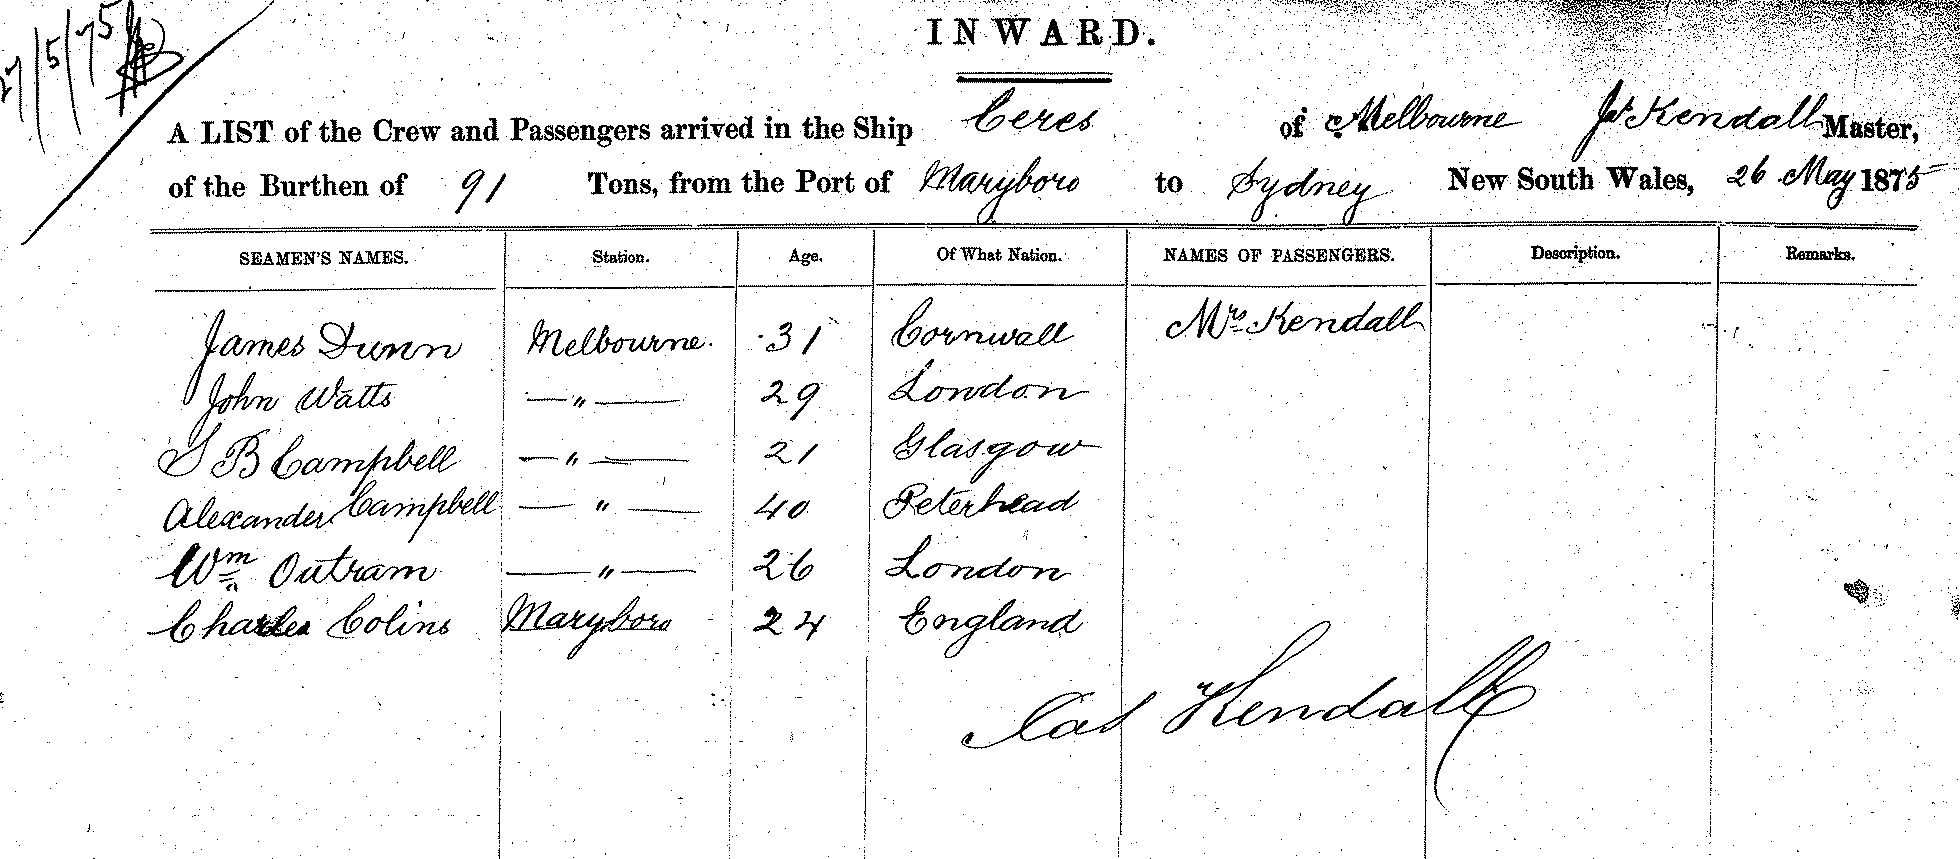 27/5/75
INWARD.
A LIST of the Crew and Passengers arrived in the Ship Ceres of Melbourne Js Kendall Master,
of the Burthen of 91 Tons, from the Port of Maryboro to Sydney New South Wales, 26 May 1875
SEAMEN'S NAMES. Station. Age. Of What Nation. NAMES OF PASSENGERS. Description. Remarks.
James Dunn Melbourne. 31 Cornwall Mrs Kendall
John Watts — " — 29 London
S B Campbell — " — 21 Glasgow
Alexander Campbell — " — 40 Peterhead
Wm Outram — " — 26 London
Charles Colins Maryboro 24 England
Jas Kendall